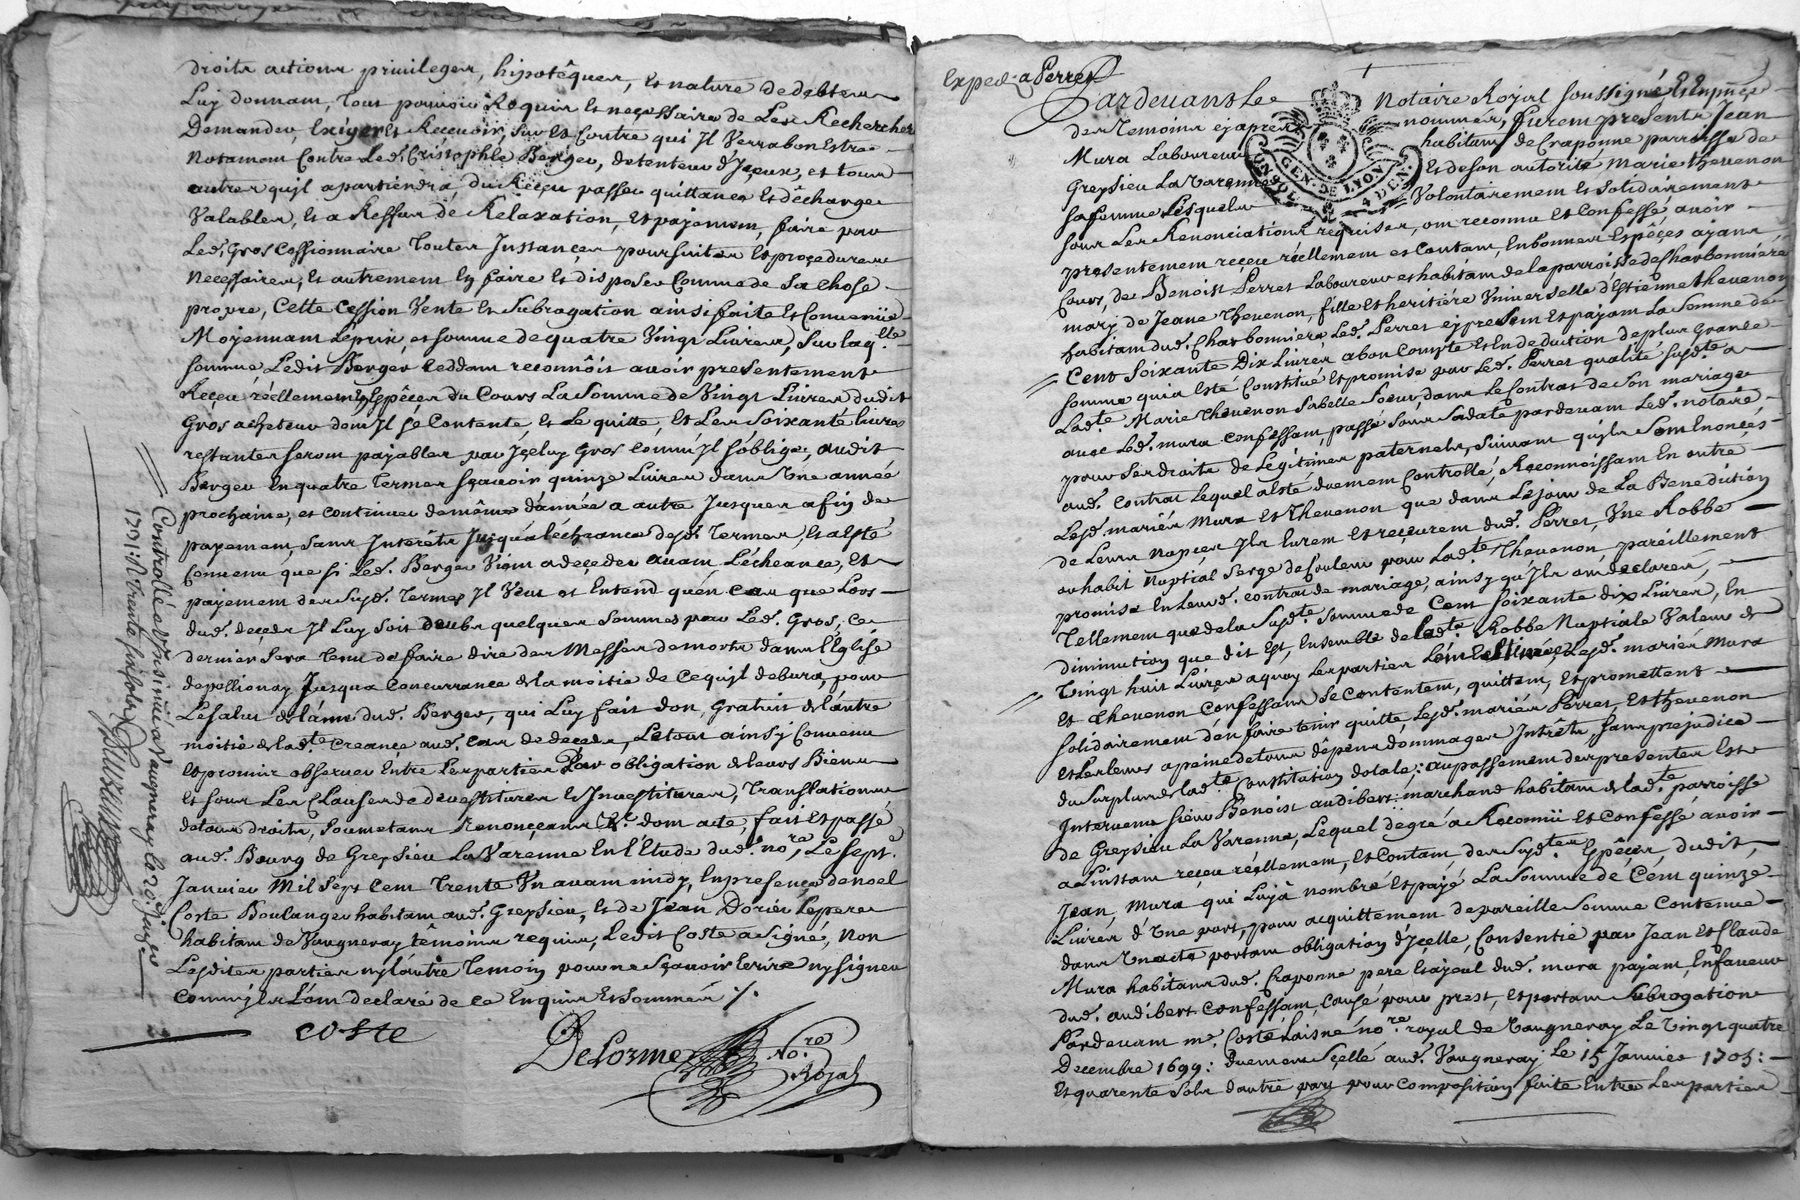 droits actions privileges, hipotêques, et nature de debteurs
Luy donnant, tout pouvoir Requis et neçessaire de Les Rechercher
Demander, Exiger et Recevoir, sur et Contre qui Il Verra bon Estre
Notament Contre Led. Cristophle Berger, detenteur d'Jceux, et tous
autres qu'il apartiendra, du Reçeu passer quittances et décharges
Valables, et a Reffus de Relaxation, et payement, faire par
Led. Gros Cessionnaire Toutes Instances poursuittes et proçedures
Neçessaires, et autrement En faire et disposer Comme de Sa chose
propre, Cette Cession Vente et Subrogation ainsi faite et Convenüe
Moyennant Le prix, et somme de quatre Vingt Livres, Sur laq.lle
somme, Ledit Berger Ceddant reconnoit avoir presentement
Reçeu réellement En Espêçes du Cours La Somme de Vingt Livres dudit
Gros acheteur dont Il se Contente, et Le quitte, et Les Soixante livres
restantes seront payables par Jçeluy Gros comme Il s'oblige, audit
Berger En quatre Termes sçavoir quinze Livres dans Une année
prochaine, et continuer de même d'année a autre Jusques a fin de
payement, sans Interêts Jusqu'a l'écheance desd. Termes, Et a Esté
Convenu que si Led. Berger Vient a deçeder avant L'écheance, Et
payement des Susd. Termes Il Veut et Entend qu'en Cas que Lors
dud. deçeds Il Luy soit deub quelques Sommes par Led. Gros, Ce
dernier sera Tenu de faire dire des Messes de morts dans l'Eglise
de pollionay Jusqua Concurrance de la moitié de Ce qu'il debvra, pour
Le salut de l'ame dud. Berger, qui Luy fait don, Gratuit de l'autre
moitié de lad.te Creance aud. Cas de deçeds, Le tout ainsy Convenu
et promis observer Entre Les parties Par obligation de leurs Biens
Et sous Les Clauses de devestitures et Investitures, Translations
de tous droits, soumetans Renonçeans &c. dont acte, fait et passé
aud. Bourg de Greysieu La Varenne En l'Etude dud. no.re, Le Sept.e
Janvier Mil Sept Cent Trente Un avant midy, En presençe de noel
Coste Boulanger habitant aud. Greysieu, et de Jean Dorier Le pere
habitant de Vaugneray têmoins requis, Ledit Coste a Signé, Non
Lesdites parties ny l'autre Temoin pour ne Sçavoir Ecrire ny signer
Comm'jls L'ont declaré de ce Enquis Et sommés ./.
coste
Delorme No.re Royal
Controllé et Insinué a Vaugneray le 20e Janvier
1731: R. Trente six sols
Exped. a Perret
Pardevant Le Notaire Royal soussigné Et En p.nce
des Temoins cy apres nommes, furent presents Jean
Mura Laboureur habitant de Craponne parroisse de
Greysieu La Varenne Et de son autorité, Marie Thevenon
sa femme Lesquels Volontairement et solidairement
sous Les Renonciations requises, ont reconnu et Confessé, avoir
presentement reçeu réellement et Contant, En bonnes Espêçes ayant
Cours, de Benoist Perret Laboureur et habitant de la parroisse de Charbonnière
mary de Jeane Thevenon, fille et heritiére Universelle d'Estienne Thevenon
habitant dud. Charbonniére, Led. Perret cy present Et payant La Somme de
Cent Soixante Dix Livres a bon Compte et En deduction de plus Grande
somme qui a Esté Constitué et promise par Led. Perret qualité susd.te a
Lad.te Marie Thevenon Sa belle Soeur, dans Le Contrat de Son mariage
avec Led. mura Confessant, passé Sous Sa date pardevant Led. notaire
pour Ses droits de Legitimes paternels, Suivant qu'jls Sont Enonçés
aud. Contrat Lequel a Esté duement Controllé, Reconnoissant En outre
Lesd. mariés Mura et Thevenon que dans Le jour de La Benediction
de Leurs nopces Jls Eurent et reçeurent dud. Perret, Une Robbe
ou habit Nuptial Serge de Couleur pour Lad.te Thevenon, pareillement
promise En Leurd. contrat de mariage, ainsy qu'jls ont declaré,
Tellement que de la Susd.te Somme de Cent Soixante dix Livres, En
diminution que dit Est, Ensemble de lad.te Robbe Nuptiale Valeur de
Vingt huit Livres a quoy Les parties L'ont Estimée, Lesd. mariés Mura
Et Thevenon Confessans Se Contentent, quittent, Et promettent
solidairement d'en faire tenir quitte, Lesd. mariés Perret, Et Thevenon
Et Les leurs a peine de tous dépens dommages Intrêts, sans prejudice
du Surplus de lad.te Constitution dotale: au passement des presentes Est
Intervenu sieur Benoist audibert marchand habitant de lad.te parroisse
de Greysieu La Varenne, Lequel de gré a Reconnü et Confessé avoir
a L'instant reçeu réellement, et Contant, des Susd.tes Espêçes, dudit
Jean, Mura qui Luy a nombré Et payé La Somme de Cent quinze
Livres d'Une part, pour acquittement de pareille Somme Contenue
dans Un acte portant obligation d'Jçelle, Consentie par Jean et Claude
Mura habitans dud. Craponne pere Et ayeul dud. mura payant, En faveur
dud. audibert Confessant, Causé pour prest, Et portant Subrogation
Pardevant m.e Coste Laisné no.re royal de Vaugneray Le Vingt quatre
Decembre 1699: Duement Sçellé aud. Vaugneray Le 15 Janvier 1705:
Et quarente Sols d'autre part pour Composition faite Entre Les parties
GEN. DE LYON
4 DEN.